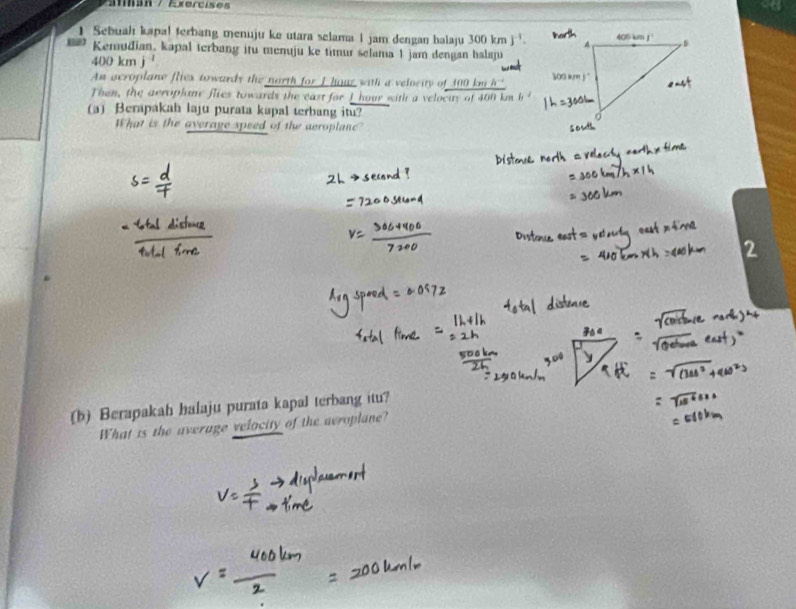 Latihan / Exercises
1 Sebuah kapal terbang menuju ke utara selama 1 jam dengan halaju 300 km j⁻¹.
Kemudian, kapal terbang itu menuju ke timur selama 1 jam dengan halaju
400 km j⁻¹
An aeroplane flies towards the north for 1 hour with a velocity of 300 km h⁻¹
Then, the aeroplane flies towards the east for 1 hour with a velocity of 400 km h⁻¹
north
400 km j⁻¹
A
B
west
300 km j⁻¹
east
1h = 300km
O
south
(a) Berapakah laju purata kapal terbang itu?
What is the average speed of the aeroplane?
s = d/T
= total distance / total time
2h → second?
= 7200 second
v = 300+400 / 7200
Avg speed = 0.0972
Distance north = velocity north × time
= 300 km/h × 1h
= 300 km
Distance east = velocity east × time
= 400 km × 1h = 400 km
2
total time = 1h+1h
= 2h
500km / 2h
= 250km/h
total distance
300
= √(distance north)²+
√(distance east)²
= √(300² + 400²)
= 500km
(b) Berapakah halaju purata kapal terbang itu?
What is the average velocity of the aeroplane?
v = s/T → displacement
→ time
v = 400km / 2 = 200km/h